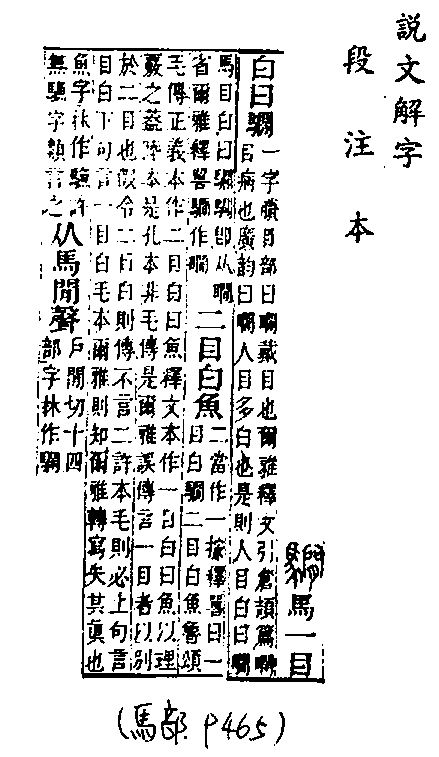 說文解字
段注本
𩦂馬一目
白曰𩦂
一字贅目部曰瞷戴目也爾雅釋文引倉頡篇瞷
目病也廣韵曰瞷人目多白也是則人目白曰瞷
馬目白曰𩦂𩦂卽从瞷
省爾雅釋嘼𩦂作瞷
二目白魚
二當作一按釋嘼曰一
目白瞷二目白魚魯頌
毛傳正義本作二目白曰魚釋文本作一目白曰魚以理
覈之葢陸本是孔本非毛傳是爾雅誤傳言一目者以別
於二目也假令二目白則傳不言二許本毛則必上句言
目白下句言一目白毛本爾雅則知爾雅轉寫失其眞也
魚字林作䱷許
無䱷字類言之
从馬閒聲
戶閒切十四
部字林作瞷
(馬部 P465)